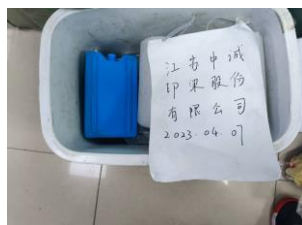 江苏中诚
印染股份
有限公司
2023.04.07